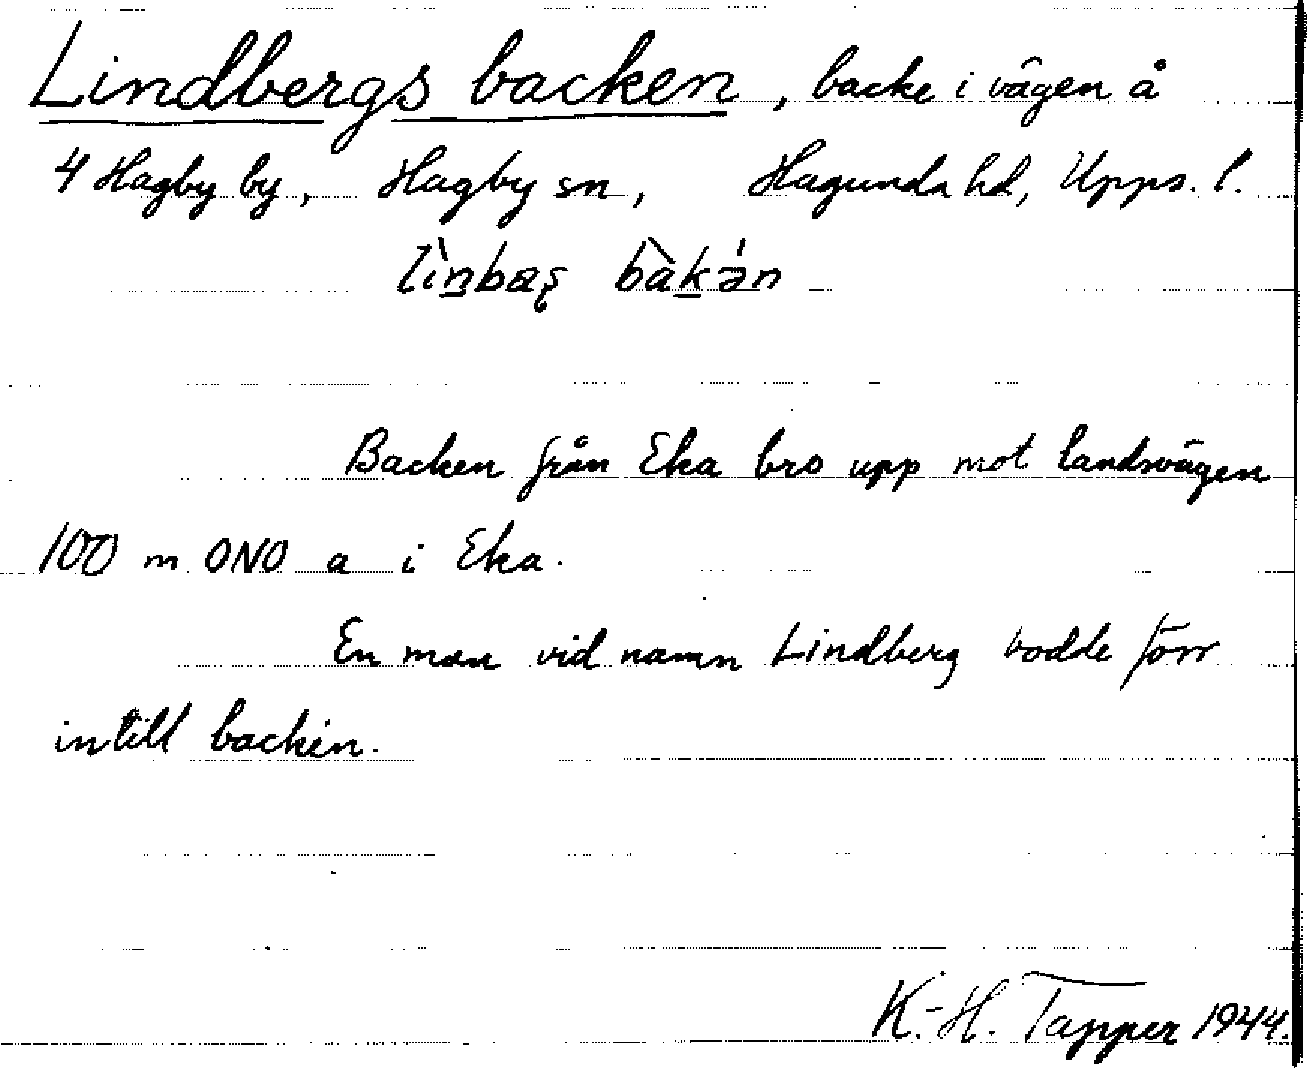 Lindbergs backen, backe i vägen å
4 Hagby by, Hagby sn, Hagunda hd, Upps. l.
lìn̲bæș bàk̲ə́n
Backen från Eka bro upp mot landsvägen
100 m ONO a i Eka.
En man vid namn Lindberg bodde förr
intill backen.
K.-H. Tapper 1944.